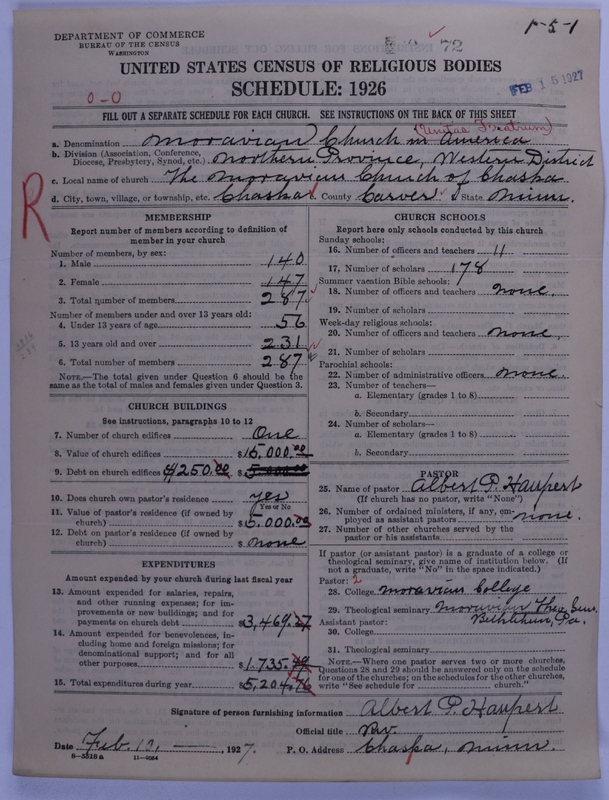 DEPARTMENT OF COMMERCE
BUREAU OF THE CENSUS
WASHINGTON
72
1-5-1
FEB 15 1927
UNITED STATES CENSUS OF RELIGIOUS BODIES
SCHEDULE: 1926
0-0
FILL OUT A SEPARATE SCHEDULE FOR EACH CHURCH. SEE INSTRUCTIONS ON THE BACK OF THIS SHEET
(Unitas Fratrum)
a. Denomination Moravian Church in America
b. Division (Association, Conference, Diocese, Presbytery, Synod, etc.) Northern Province, Western District
c. Local name of church The Moravian Church of Chaska
d. City, town, village, or township, etc. Chaska e. County Carver f. State Minn.
R
MEMBERSHIP
Report number of members according to definition of
member in your church
Number of members, by sex:
1. Male 140
2. Female 147
3. Total number of members 287
Number of members under and over 13 years old:
4. Under 13 years of age 56
5. 13 years old and over 231
6. Total number of members 287
NOTE.—The total given under Question 6 should be the
same as the total of males and females given under Question 3.
CHURCH BUILDINGS
See instructions, paragraphs 10 to 12
7. Number of church edifices One
8. Value of church edifices $ 15,000.00
9. Debt on church edifices 4250.00 $ 5,000.00
10. Does church own pastor's residence yes
Yes or No
11. Value of pastor's residence (if owned by
church) $ 5,000.00
12. Debt on pastor's residence (if owned by
church) $ none
EXPENDITURES
Amount expended by your church during last fiscal year
13. Amount expended for salaries, repairs,
and other running expenses; for im-
provements or new buildings; and for
payments on church debt $ 3,469.27
14. Amount expended for benevolences, in-
cluding home and foreign missions; for
denominational support; and for all
other purposes $ 1,735.49
15. Total expenditures during year $ 5,204.76
CHURCH SCHOOLS
Report here only schools conducted by this church
Sunday schools:
16. Number of officers and teachers 11
17. Number of scholars 178
Summer vacation Bible schools:
18. Number of officers and teachers none.
19. Number of scholars
Week-day religious schools:
20. Number of officers and teachers none.
21. Number of scholars
Parochial schools:
22. Number of administrative officers none.
23. Number of teachers—
a. Elementary (grades 1 to 8)
b. Secondary
24. Number of scholars—
a. Elementary (grades 1 to 8)
b. Secondary
PASTOR
25. Name of pastor Albert P. Haupert
(If church has no pastor, write "None")
26. Number of ordained ministers, if any, em-
ployed as assistant pastors none.
27. Number of other churches served by the
pastor or his assistants
If pastor (or assistant pastor) is a graduate of a college or
theological seminary, give name of institution below. (If
not a graduate, write "No" in the space indicated.)
Pastor: 2
28. College Moravian College
29. Theological seminary Moravian Theo. Sem.
Assistant pastor: Bethlehem, Pa.
30. College
31. Theological seminary
NOTE.—Where one pastor serves two or more churches,
Questions 28 and 29 should be answered only on the schedule
for one of the churches; on the schedules for the other churches,
write "See schedule for church."
Signature of person furnishing information Albert P. Haupert
Official title Rev.
Date Feb. 12, 1927. P. O. Address Chaska, Minn.
8-5518a 11-9084